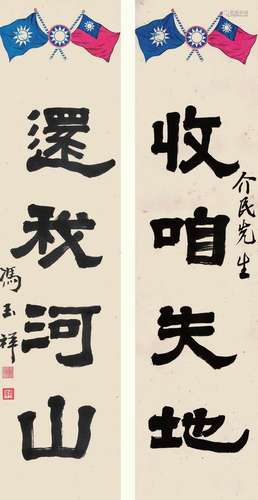 介民先生
收咱失地
還我河山
馮玉祥